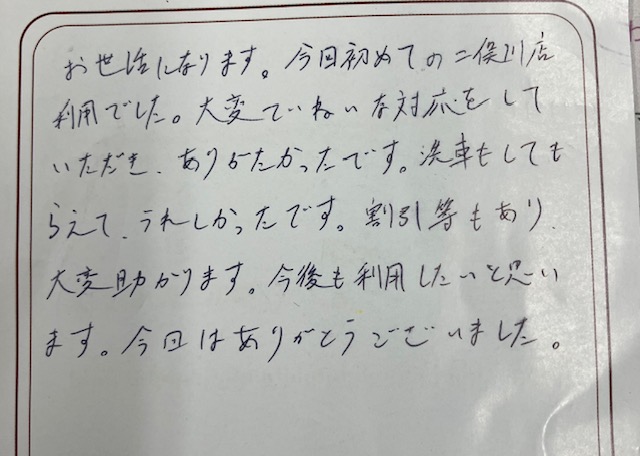 お世話になります。今回初めての二俣川店
利用でした。大変ていねいな対応をして
いただき、ありがたかったです。洗車もしても
らえて、うれしかったです。割引等もあり、
大変助かります。今後も利用したいと思い
ます。今回はありがとうございました。